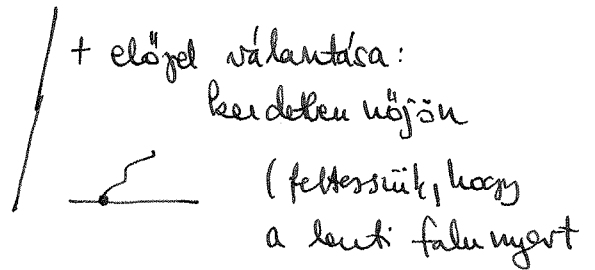 + előjel választása:
kezdetben nőjön
(feltesszük, hogy
a lenti falu nyert